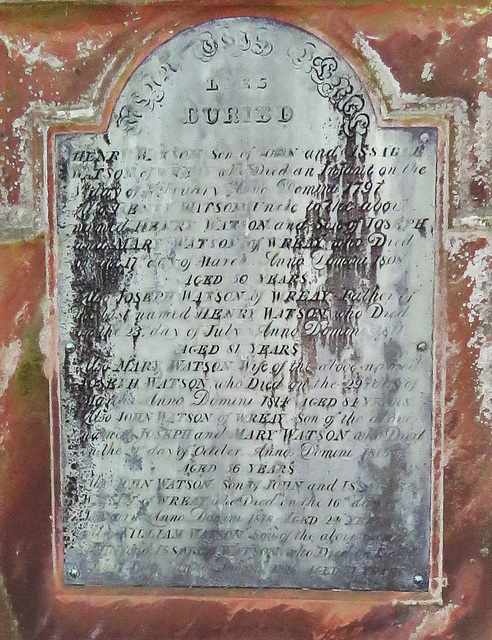 LIES
BURIED
HENRY WATSON Son of JOHN and ISSABELL
WATSON of Died an Infant on the
of February Anno Domini 1797
HENRY WATSON Uncle to the above
named HENRY WATSON and Son of JOSEPH
and MARY WATSON of WREAY who Died
on the 17th day of March Anno Domini
AGED 50 YEARS
Also JOSEPH WATSON of WREAY Father of
the last named HENRY WATSON who Died
on the 23 day of July Anno Domini
AGED 81 YEARS
Also MARY WATSON Wife of the above named
JOSEPH WATSON who Died on the 29th day of
Anno Domini 1814 AGED 84 YEARS
Also JOHN WATSON of WREAY Son of the above
named JOSEPH and MARY WATSON who Died
on the day of October Anno Domini 1815
AGED 56 YEARS
Also JOHN WATSON Son of JOHN and
WATSON of WREAY who Died on the 16th day
Anno Domini 1818 AGED 24 YEARS
WILLIAM WATSON Son of the above named
JOHN and ISSABELL WATSON who Died
AGED